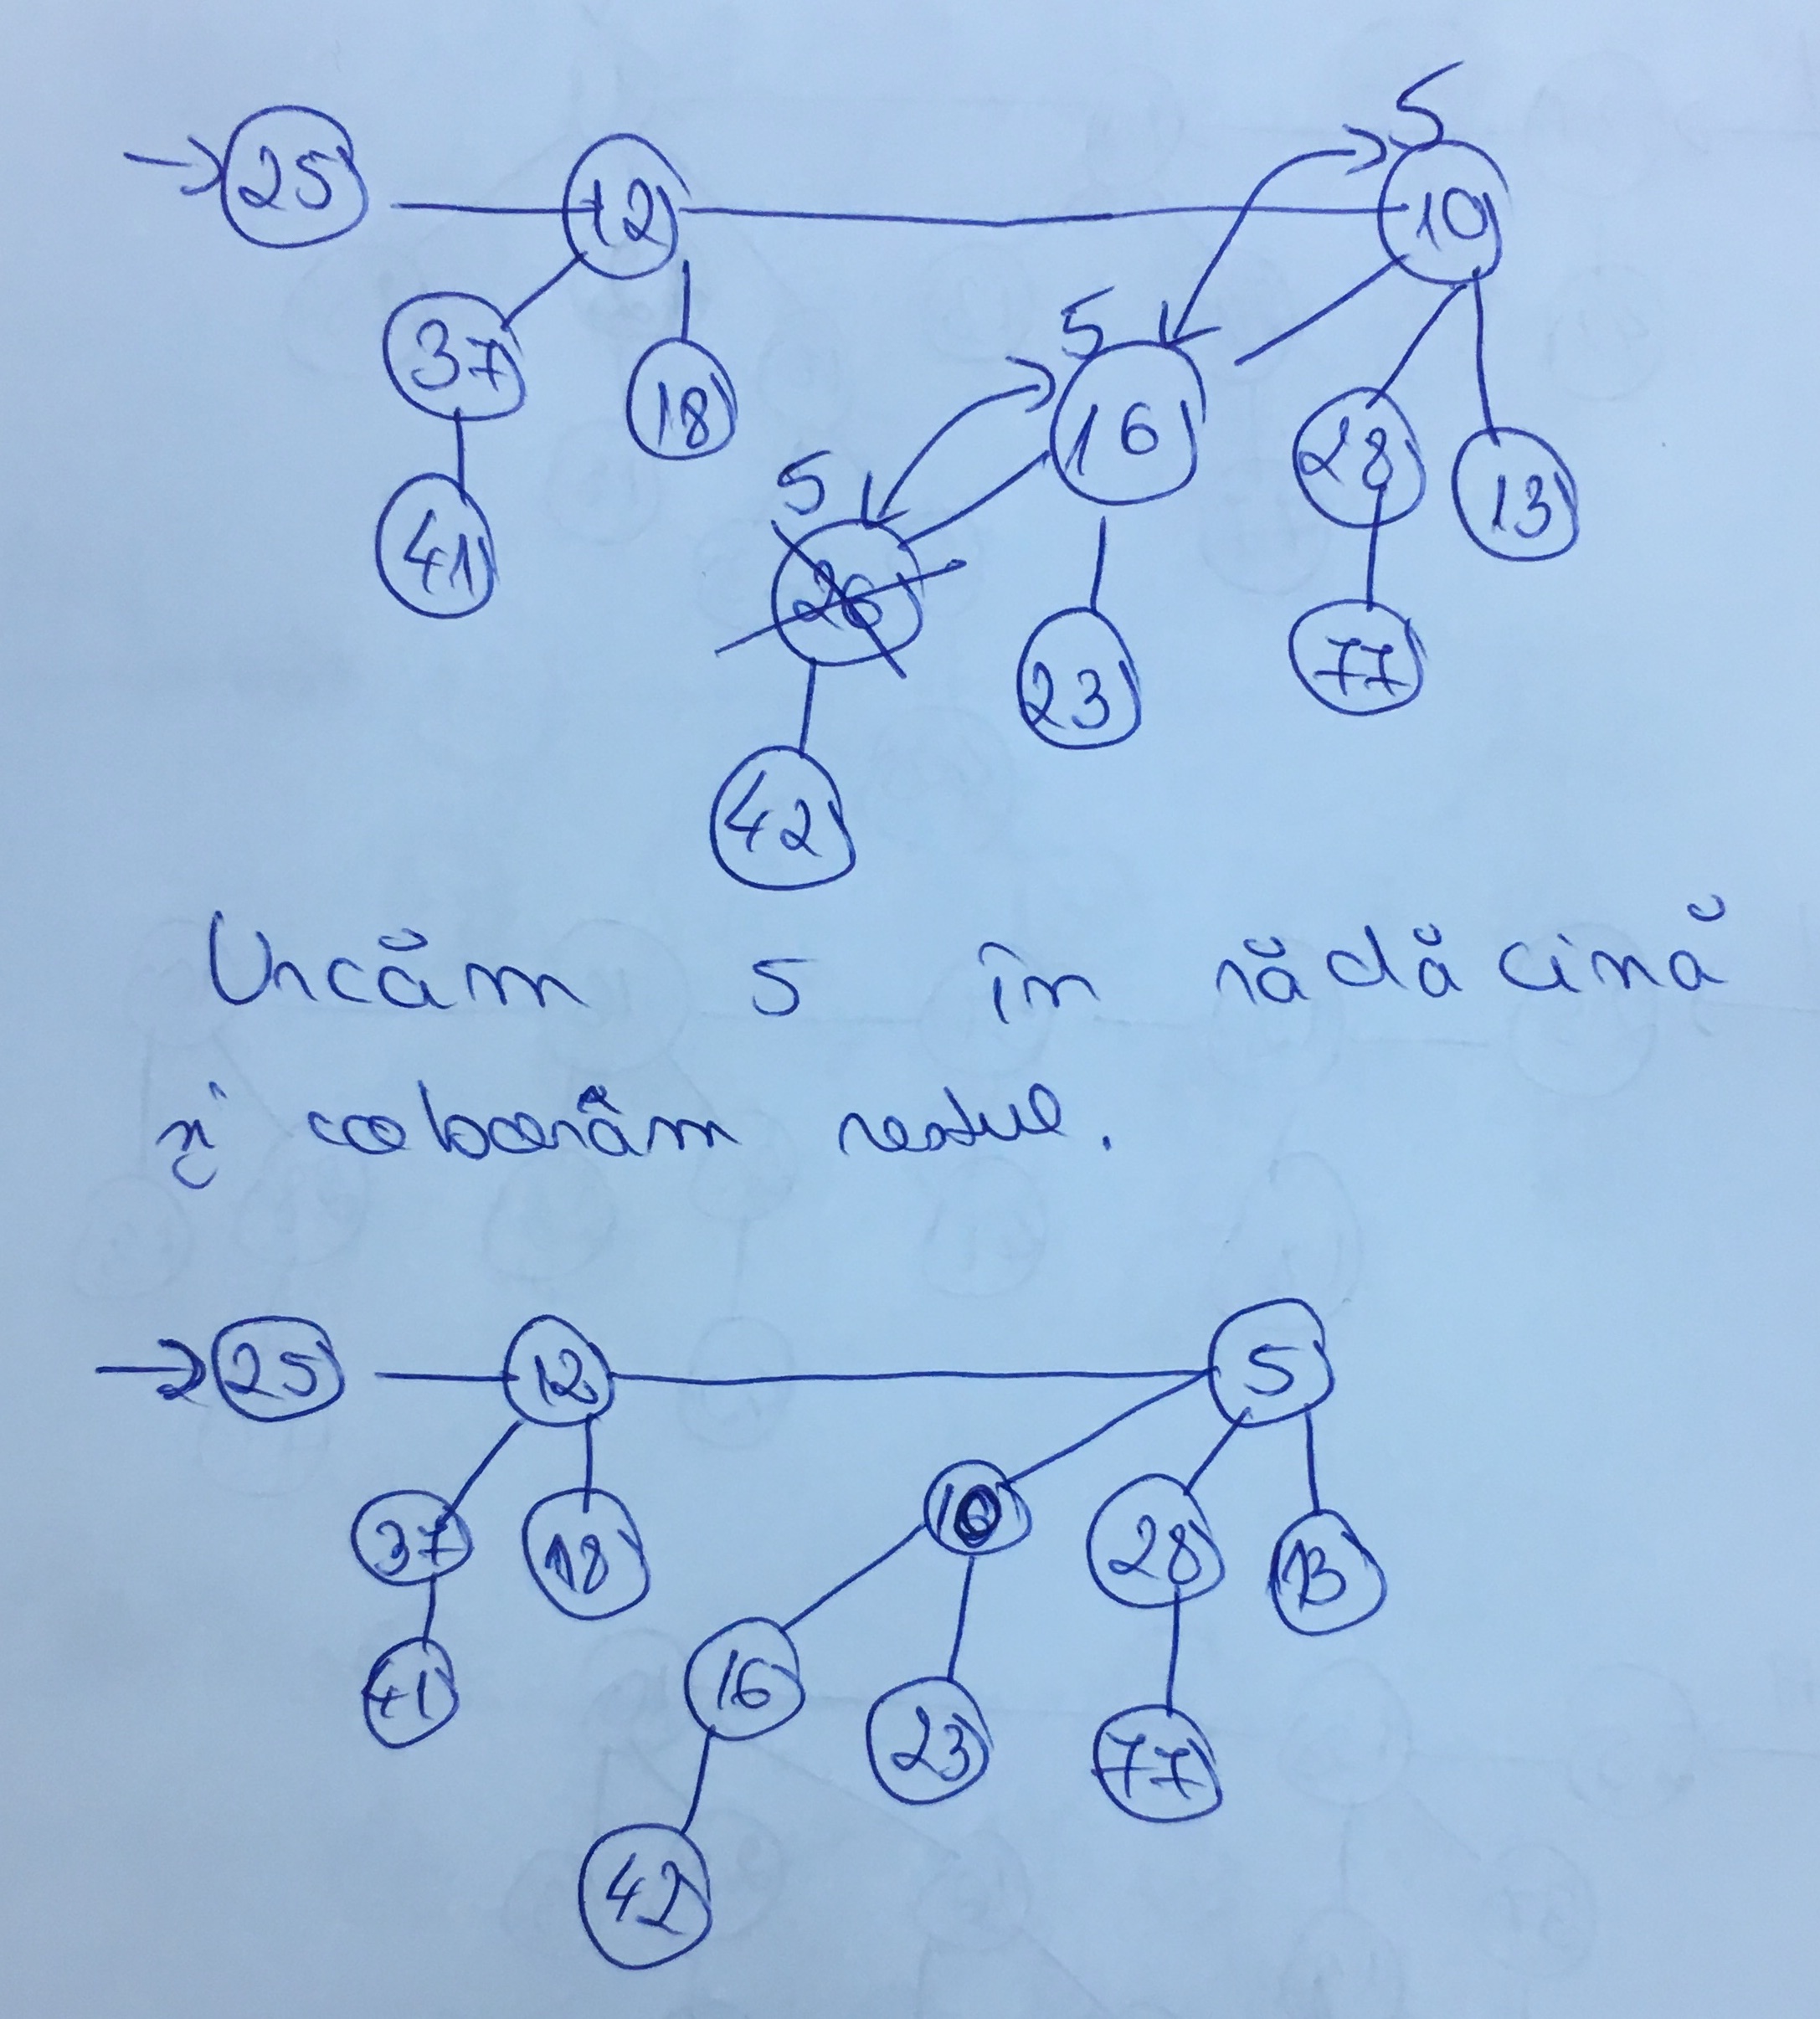 5
25 12 10
5
37 16
18 28 13
5
41 26
23 77
42
Urcăm 5 în rădăcină
și coborâm restul.
25 12 5
37 18 10 28 13
41 16 23 77
42